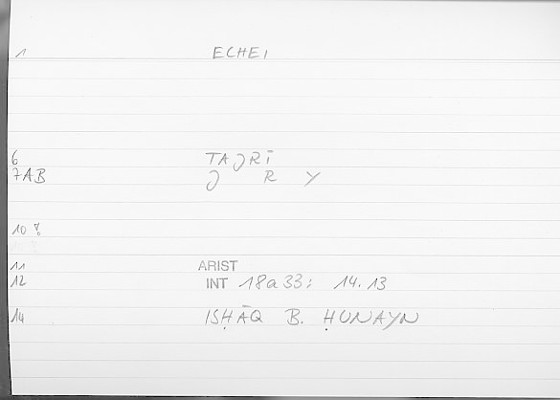 1 ECHEI
6 TAJRĪ
7AB J R Y
10
11 ARIST
12 INT 18a33; 14.13
14 ISḤĀQ B. ḤUNAYN